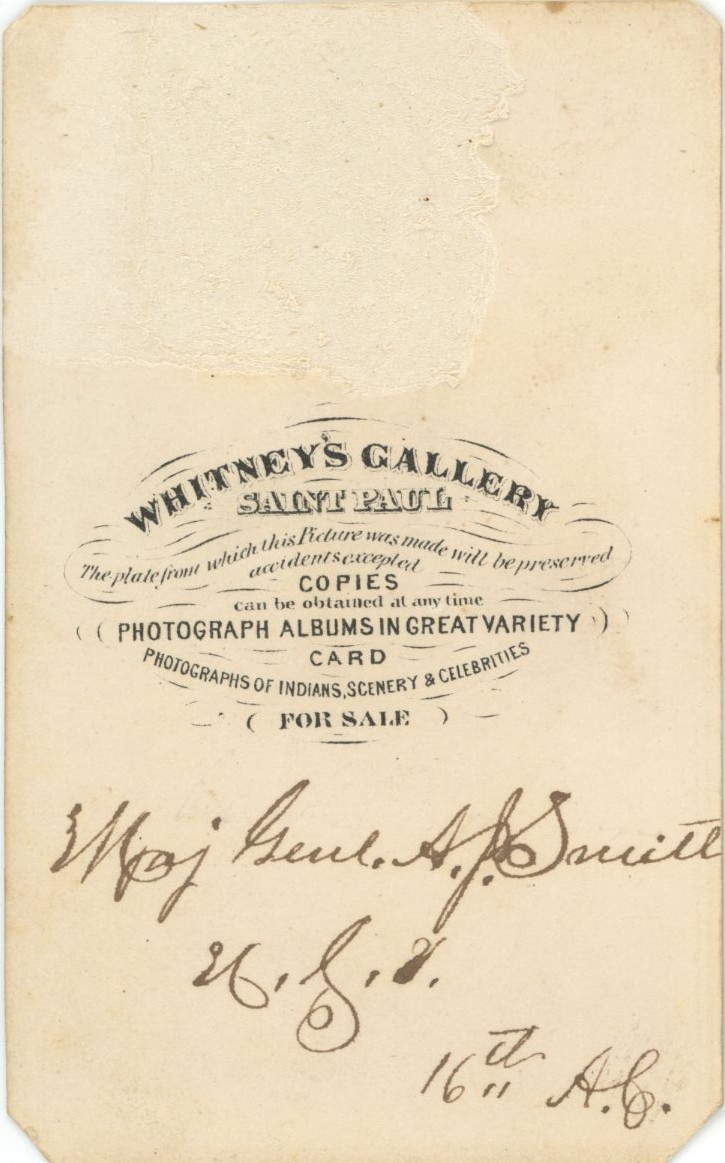 WHITNEY'S GALLERY
SAINT PAUL
The plate from which this Picture was made will be preserved
accidents excepted
COPIES
can be obtained at any time
( ( PHOTOGRAPH ALBUMS IN GREAT VARIETY ) )
CARD
PHOTOGRAPHS OF INDIANS, SCENERY & CELEBRITIES
( FOR SALE )
Maj Genl. A. J. Smith
U. S. V.
16th A. C.